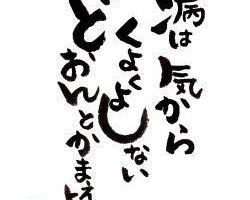 病は気から
くよくよしない
どおんとかまえ